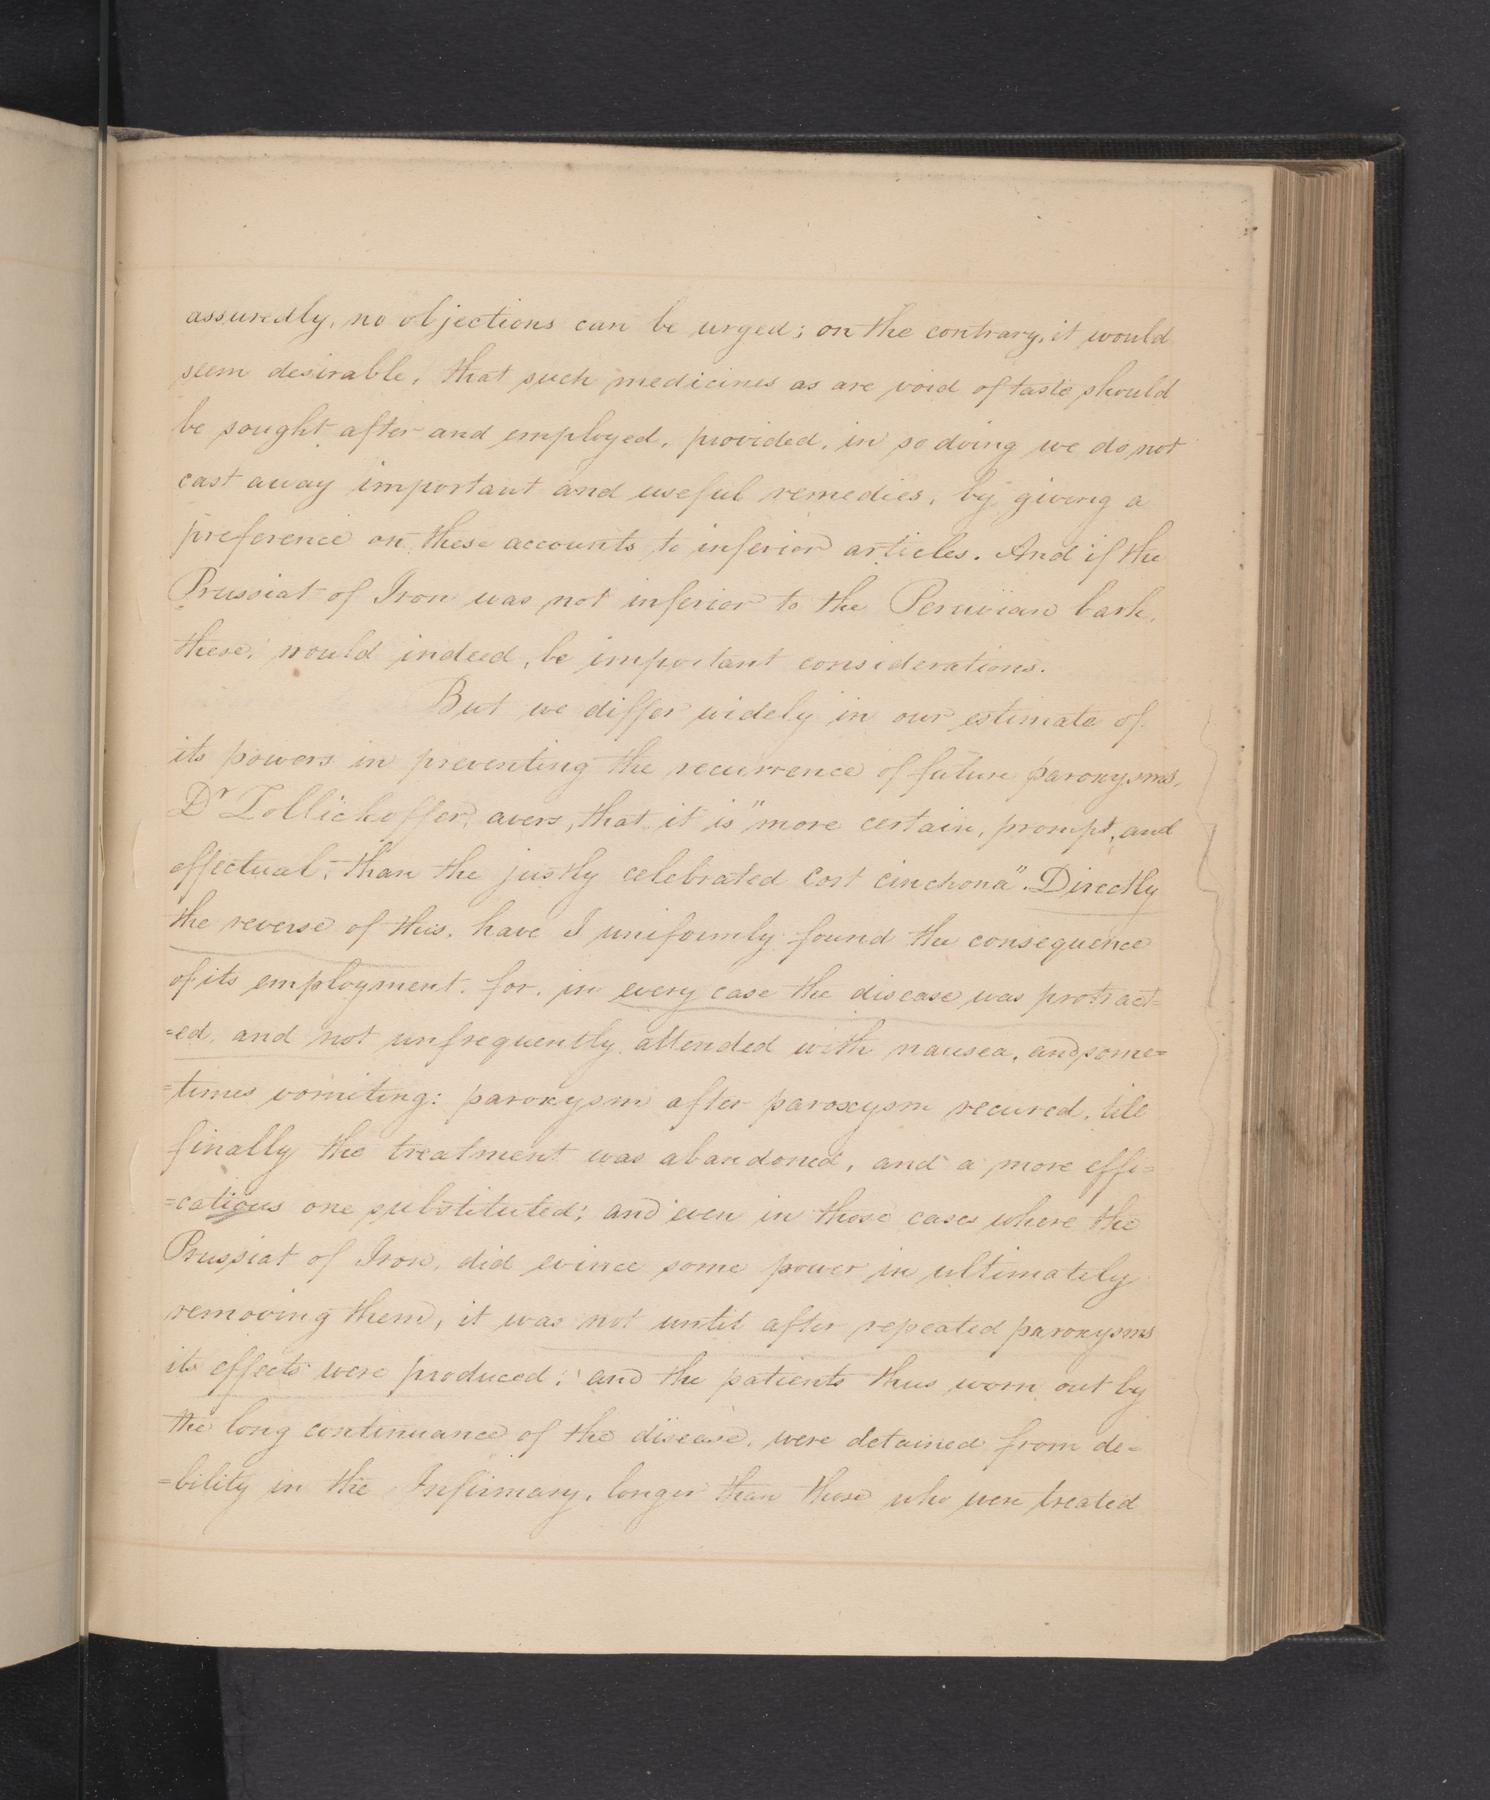 assuredly, no objections can be urged; on the contrary, it would
seem desirable, that such medicines as are void of taste should
be sought after and employed, provided, in so doing we do not
cast away important and useful remedies, by giving a
preference on these accounts to inferior articles. And if the
Prussiat of Iron was not inferior to the Peruvian bark,
these, would indeed, be important considerations.
But we differ widely in our estimate of
its powers in preventing the recurrence of future paroxysms.
Dr Zollickoffer, avers, that it is "more certain, prompt, and
effectual, than the justly celebrated cort cinchona". Directly
the reverse of this, have I uniformly found the consequence
of its employment, for, in every case the disease was protract=
=ed, and not unfrequently attended with nausea, and some=
=times vomiting: paroxysm after paroxysm recured, till
finally the treatment was abandoned, and a more effi=
=catious one substituted; and even in those cases where the
Prussiat of Iron, did evince some power in ultimately
removing them, it was not until after repeated paroxysms
its effects were produced; and the patients thus worn out by
the long continuance of the disease, were detained from de=
=bility in the Infirmary, longer than those who were treated